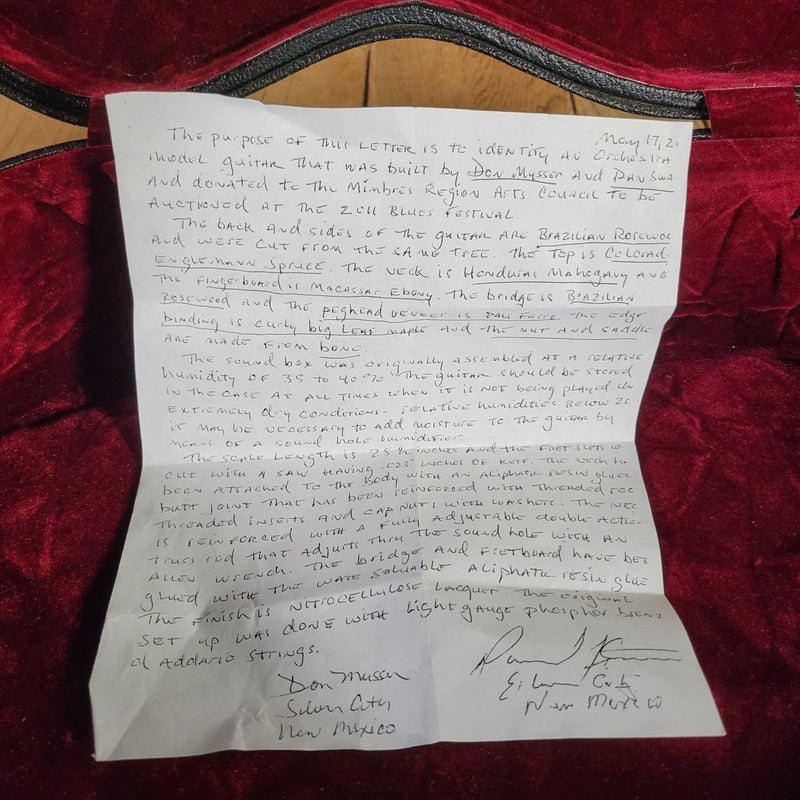 May 17, 2
The purpose of this letter is to identity an Orchestra
model guitar that was built by Don Musser and Dan Swa
and donated to the Mimbres Region Arts Council to be
auctioned at the 2011 Blues Festival.
The back and sides of the guitar are Brazilian Rosewoo
and were cut from the same tree. The top is Colorad
Englemann Spruce. The neck is Honduras Mahogany and
the fingerboard is Macassar Ebony. The bridge is Brazilian
Rosewood and the peghead veneer is The edge
binding is curly big leaf maple and the nut and saddle
are made from bone.
The sound box was originally assembled at a relative
humidity of 35 to 40%. The guitar should be stored
in the case at all times when it is not being played. In
extremely dry conditions - relative humidities below 20
it may be necessary to add moisture to the guitar by
means of a sound hole humidifier.
The scale length is 25 1/2 inches and the fret slots w
cut with a saw having .023" inches of kerf. The neck h
been attached to the body with an aliphatic resin glued
butt joint that has been reinforced with threaded roc
threaded inserts and cap nuts with washers. The nec
is reinforced with a fully adjustable double action
truss rod that adjusts thru the sound hole with an
Allen wrench. The bridge and fretboard have bee
glued with the water soluable aliphatic resin glue
The finish is nitrocellulose lacquer. The original
set up was done with light gauge phosphor bronz
d'Addario strings.
Don Musser
Silver City
New Mexico
Silver City
New Mexico